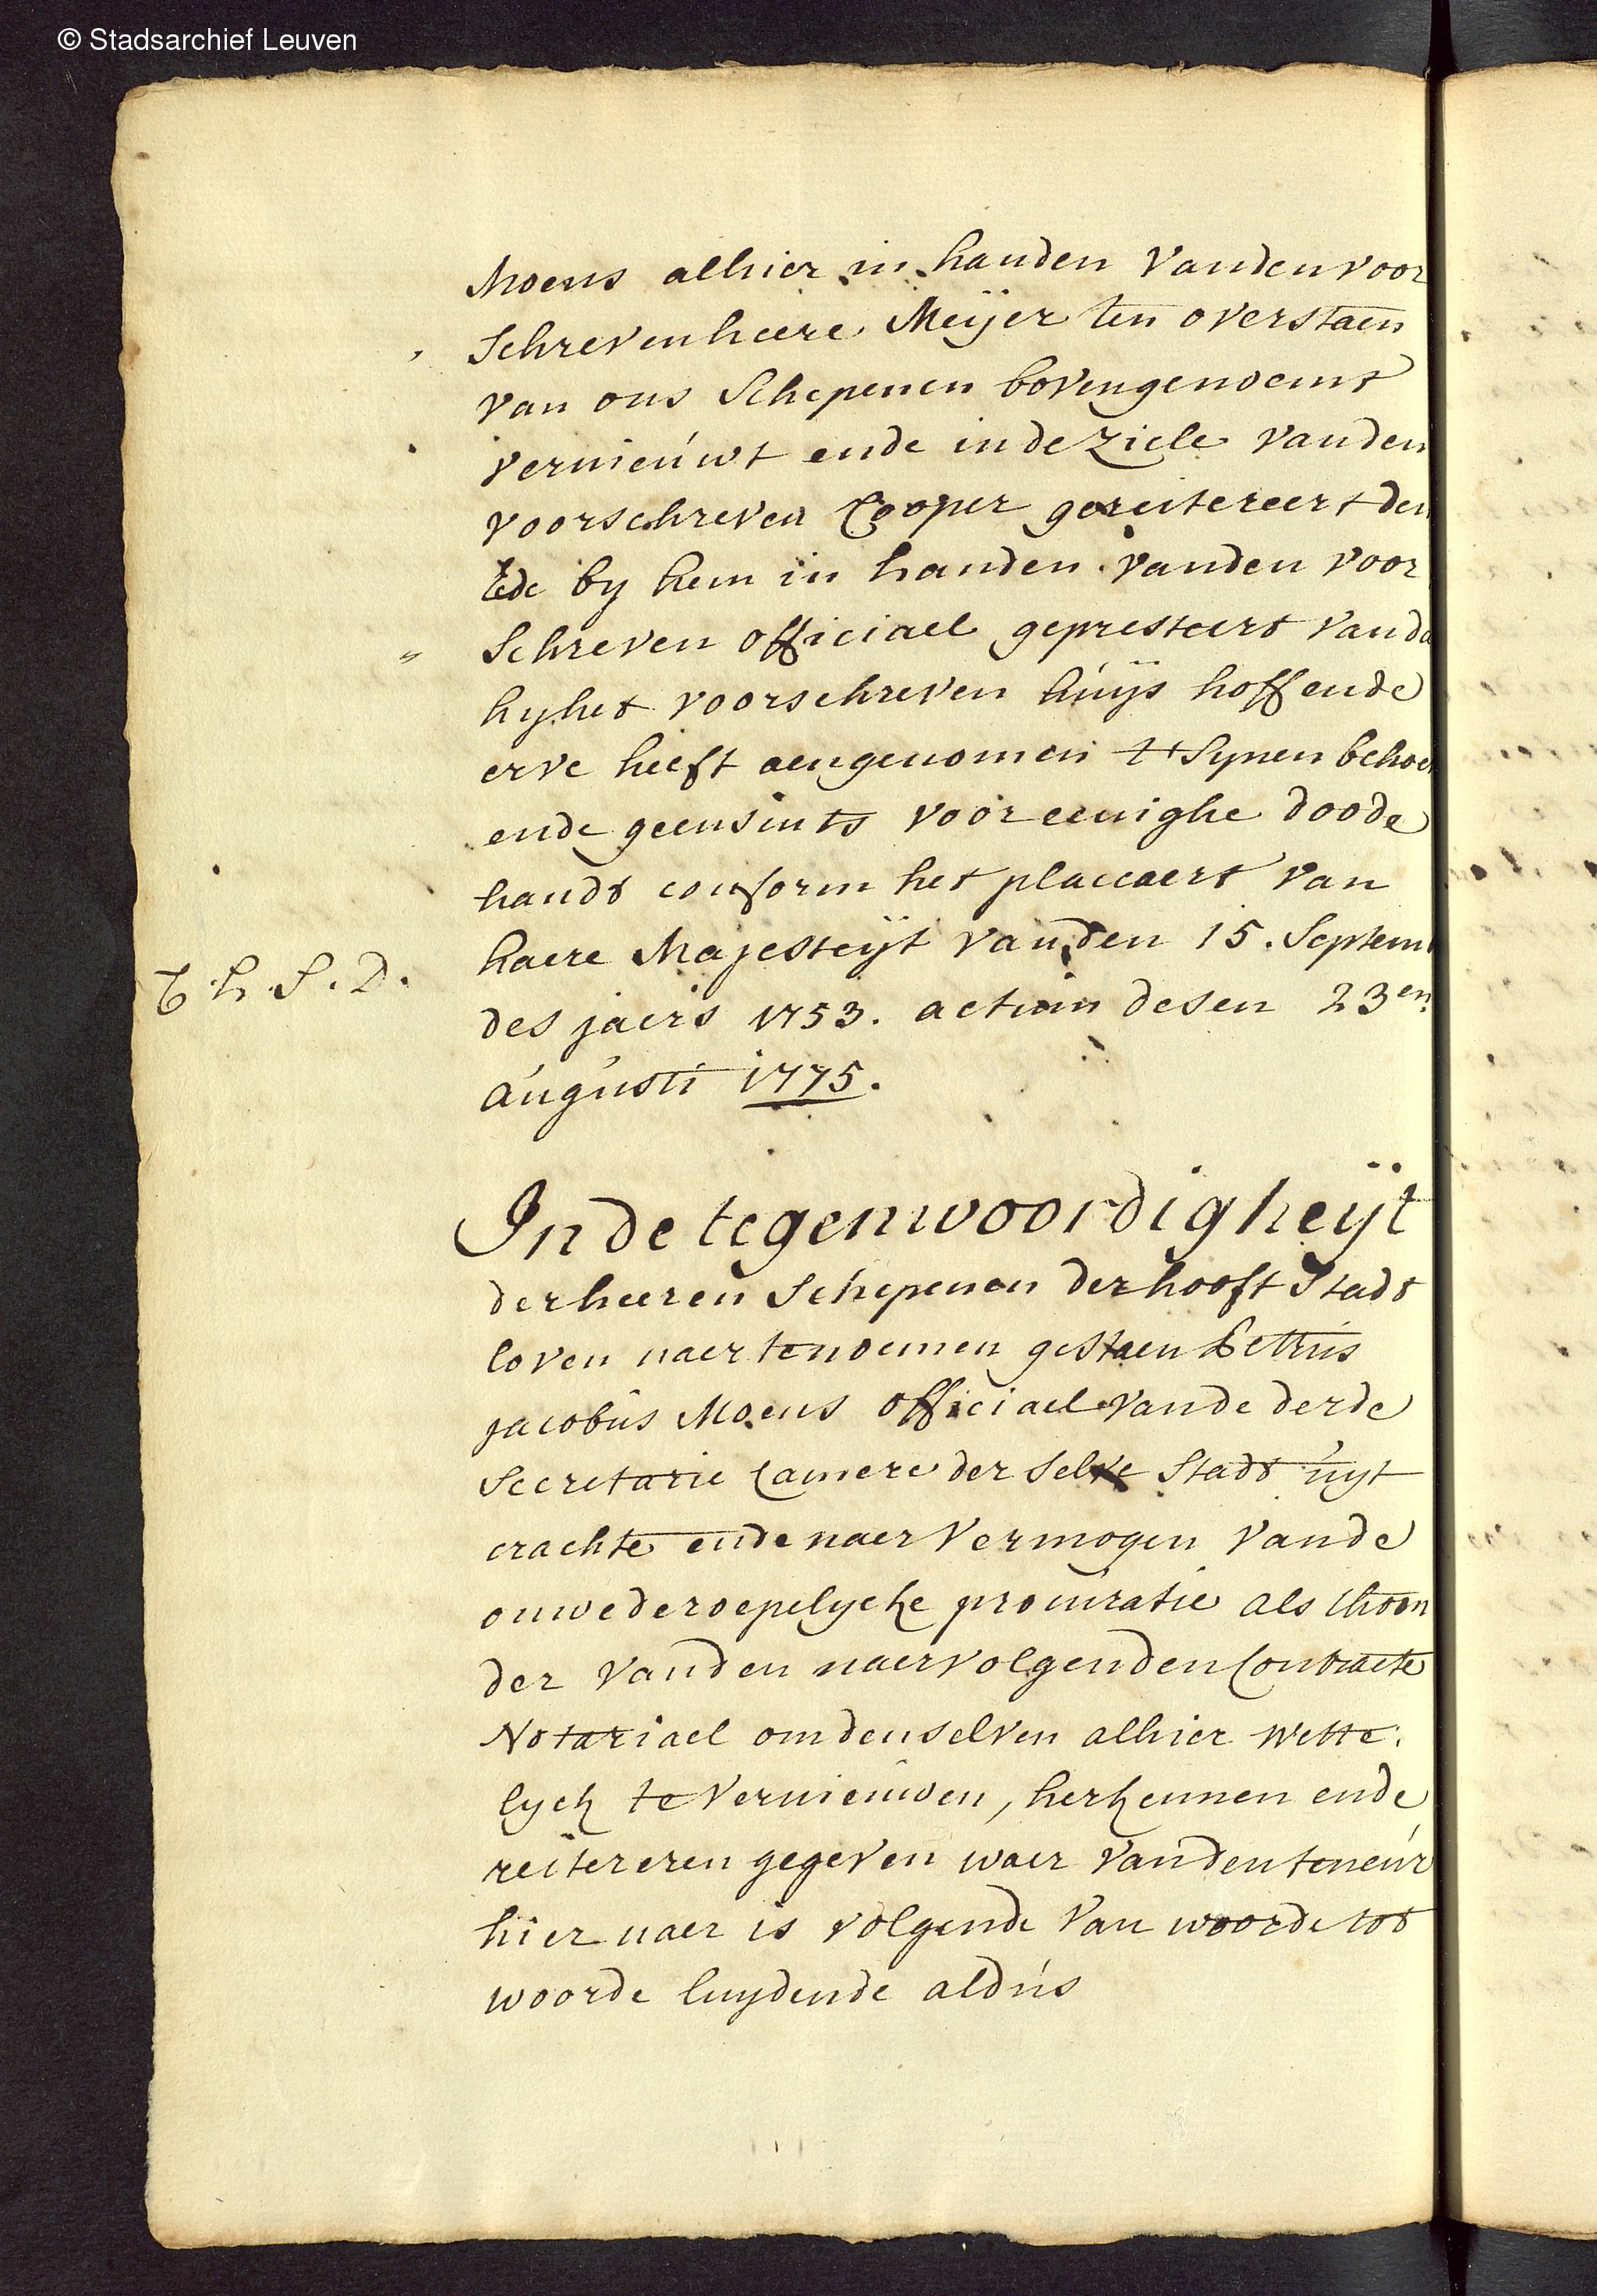 © Stadsarchief Leuven
Moens alhier in handen vanden voor
schreven heere Meÿer ten overstaen
van ons schepenen bovengenoemt
vernieuwt ende inde ziele vanden
voorschreven Cooper gereitereert den
Ede by hem in handen vanden voor
schreven officiael gepresteert van da
hy het voorschreven huÿs hoff ende
erve heeft aengenomen t'synen behoe
ende geensints voor eenighe doode
handt conform het placcaert van
haere Majesteÿt vanden 15. Septem
T. h. S. D.
des jaers 1753. actum desen 23en
augusti 1775.
In de tegenwoordigheÿt
der heeren schepenen der hooft stadt
loven naer tenoemen gestaen Petrus
jacobus Moens officiael vande derde
Secretarie Camere der selve stadt uyt
crachte ende naer vermogen vande
onwederoepelycke procuratie als thoon
der vanden naervolgenden Contracte
Notariael om denselven alhier wette.
lyck te vernieuwen, herkennen ende
reitereren gegeven waer vanden teneur
hier naer is volgende van woorde tot
woorde luydende aldus